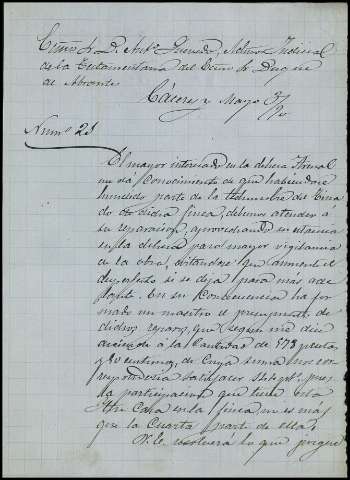 Excmo Sr. D. Anto Quevedo, Admor Judicial
de la Testamentaria del Excmo Sr Duque
de Abrantes
Cáceres 2 Mayo 3/90
Num! 23
El mayor interesado en la dehesa Arenal
me dá conocimiento de que habiendose
hundido parte de la techumbre del
de dicha finca, debemos atender á
su reparacion, aprovechando su estancia
en la dehesa para mayor vigilancia
de la obra, evitandose que aumente el
desperfecto si se deja para más ade
lante. En su consecuencia ha for
mado un maestro el presupuesto de
dichos reparos, que segun me dice
asciende á la cantidad de 873 pesetas
y 20 centimos, de cuya suma nos cor
responderia satisfacer pts, pues
la participacion que tiene esta
Casa en la finca no es más
que la cuarta parte de ella.
V. E. resolverá lo que juzgue